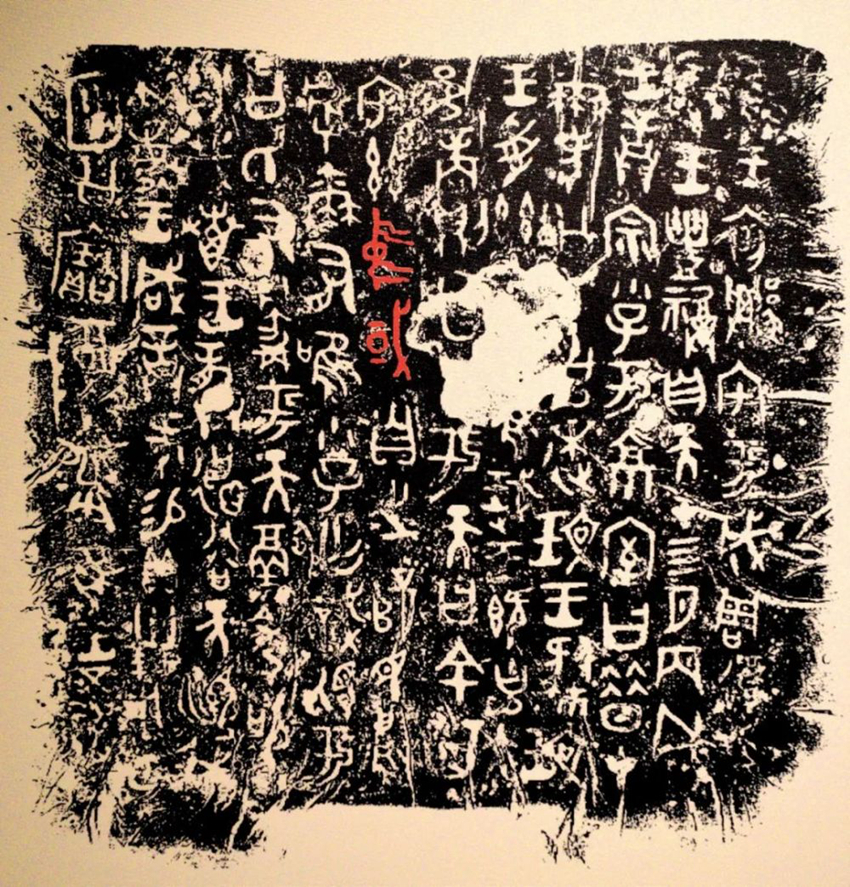 隹王初遷宅于成周復爯
珷王豐福自天才四月丙戌
王誥宗小子于京室曰昔才
爾考公氏克逨玟王肄玟
王受茲隹珷王既克大
邑商則廷告于天曰余其
宅茲中或自之乂民烏
虖爾有唯小子亡識視于
公氏有爵于天徹令敬
享哉隹王恭德谷天順我
不敏王咸誥何易貝卅朋用乍
公寶尊彝隹王五祀